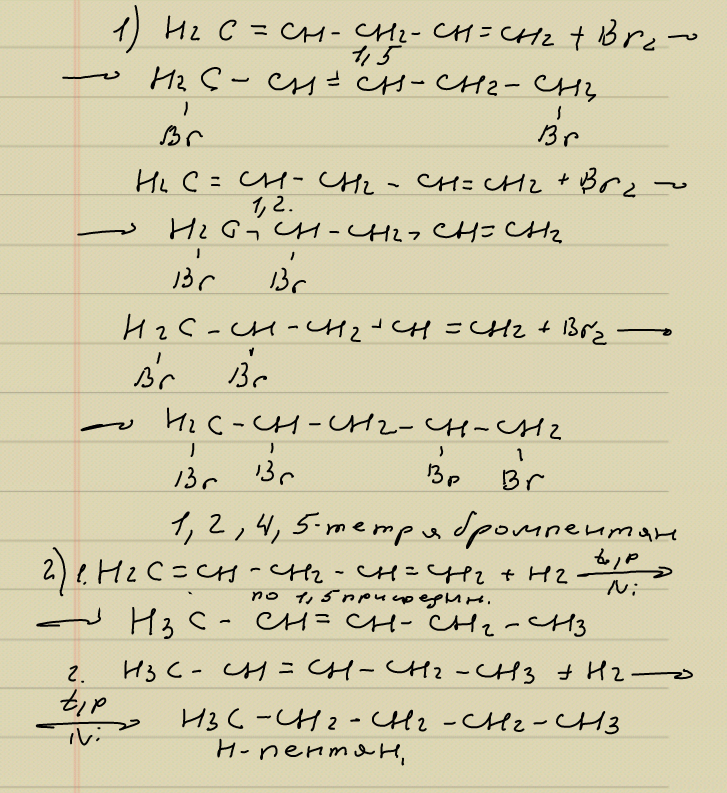 1) H₂C = CH - CH₂ - CH = CH₂ + Br₂ →
1,5
→ H₂C - CH = CH - CH₂ - CH₂
Br Br
H₂C = CH - CH₂ - CH = CH₂ + Br₂ →
1,2.
→ H₂C - CH - CH₂ - CH = CH₂
Br Br
H₂C - CH - CH₂ - CH = CH₂ + Br₂ →
Br Br
→ H₂C - CH - CH₂ - CH - CH₂
Br Br Вр Br
1, 2, 4, 5-тетра бромпентан
2) 1. H₂C = CH - CH₂ - CH = CH₂ + H₂ t,p → Ni
по 1,5 присоедин.
→ H₃C - CH = CH - CH₂ - CH₃
2. H₃C - CH = CH - CH₂ - CH₃ + H₂ →
t,p → Ni H₃C - CH₂ - CH₂ - CH₂ - CH₃
н-пентан,